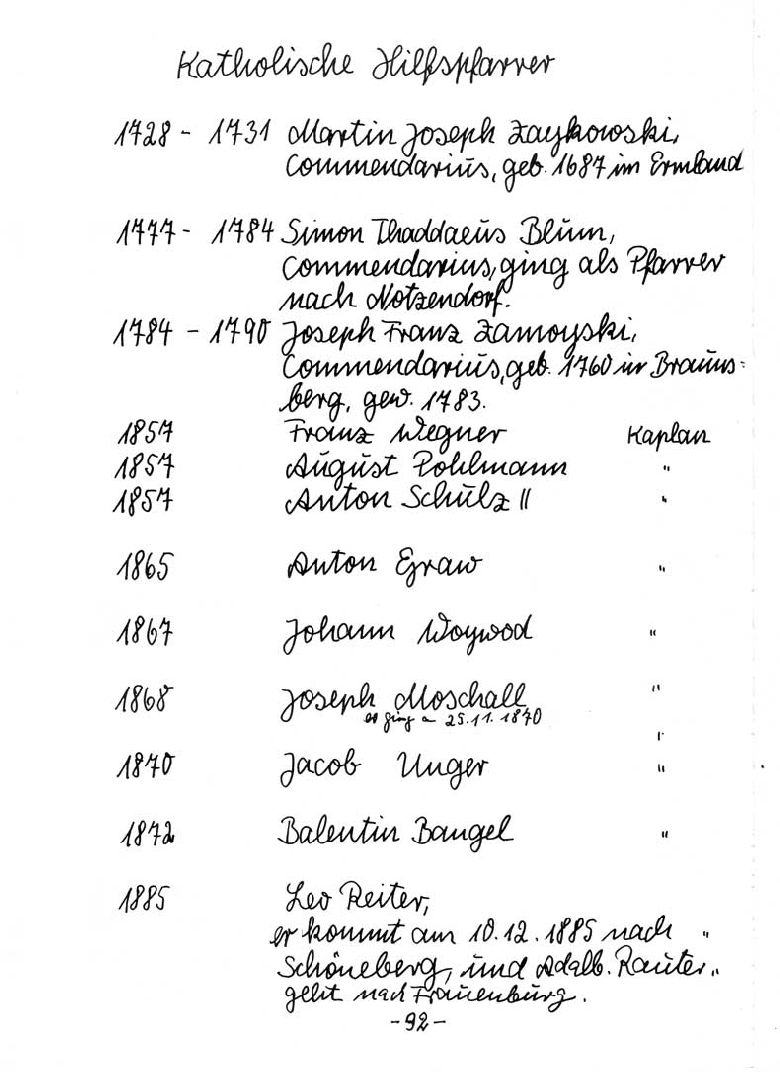 Katholische Hilfspfarrer
1728 - 1731 Martin Joseph Zaykowski,
Commendarius, geb. 1687 im Ermland
1777 - 1784 Simon Thaddaeus Blum,
Commendarius, ging als Pfarrer
nach Notzendorf.
1784 - 1790 Joseph Franz Zamoyski,
Commendarius, geb. 1760 in Brauns=
berg, gew. 1783.
1857 Franz Wegner Kaplan
1857 August Pohlmann "
1857 Anton Schulz II "
1865 Anton Graw "
1867 Johann Woywod "
1868 Joseph Moschall "
er ging a 25.11.1870 "
1870 Jacob Unger "
1872 Balentin Bangel "
1885 Leo Reiter,
er kommt am 10.12.1885 nach "
Schöneberg, und Adalb. Rauter "
geht nach Frauenburg.
-92-